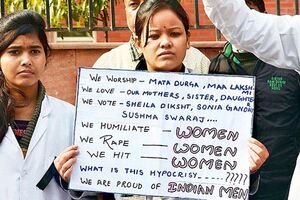 WE WORSHIP - MATA DURGA, MAA LAKSH-
MI
WE LOVE - OUR MOTHERS, SISTER, DAUGHTER
WE VOTE - SHEILA DIKSHT, SONIA GANDHI
SUSHMA SWARAJ....
WE HUMILIATE WOMEN
WE RAPE WOMEN
WE HIT WOMEN
WHAT IS THIS HYPOCRISY.....?????
WE ARE PROUD OF INDIAN MEN